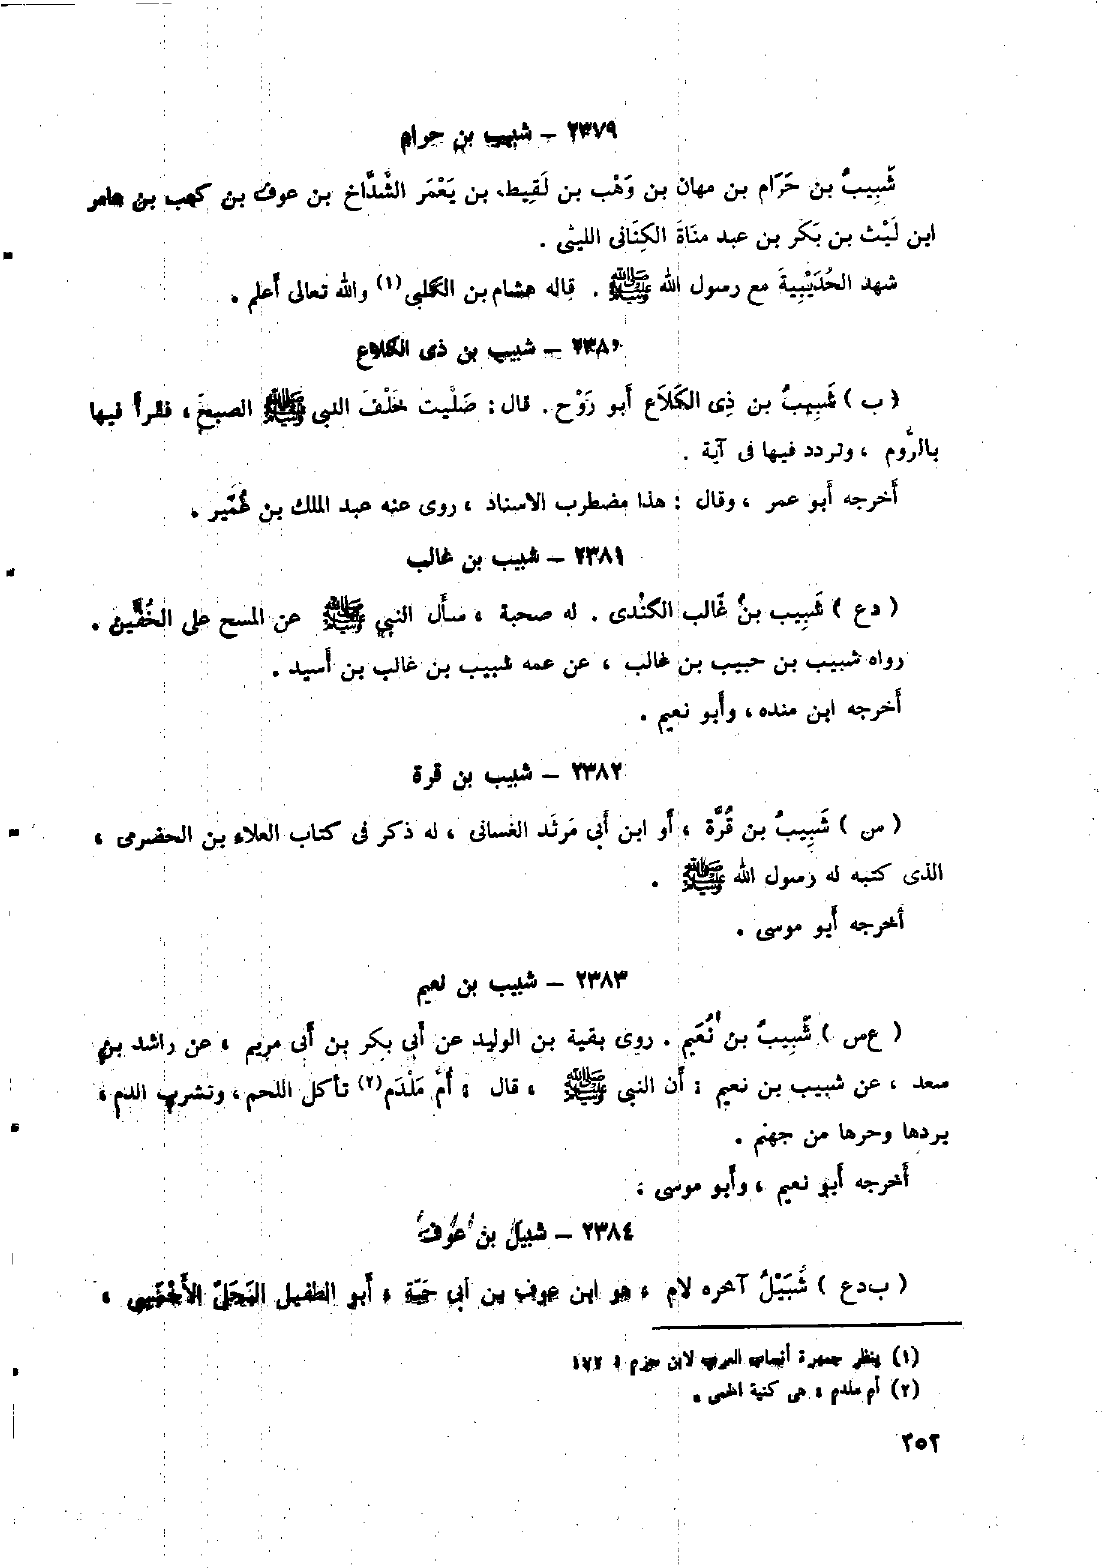 ٢٣٧٩ – شبيب بن حرام
شَبِيبُ بن حَرَام بن مهان بن وَهْب بن لَقِيط، بن يَعْمَر الشُّدَّاخ بن عوف بن كعب بن عامر
ابن لَيْث بن بَكر بن عبد منَاةَ الكِنَانى الليثى .
شهد الحُدَيْبِيةَ مع رسول الله ﷺ . قاله هشام بن الكلبى (١) والله تعالى أعلم .
٢٣٨٠ – شبيب بن ذى الكلاع
( ب ) شَبِيبُ بن ذِى الكَلَاع أبو رَوْح . قال : صَلَّيت خَلْفَ النبى ﷺ الصبحَ ، فقرأ فيها
بالرُّوم ، وتردد فيها فى آية .
أخرجه أبو عمر ، وقال : هذا مضطرب الاسناد ، روى عنه عبد الملك بن عُمَير .
٢٣٨١ – شبيب بن غالب
( دع ) شَبِيب بنُ غَالب الكنْدى . له صحبة ، سأَل النبي ﷺ عن المسح على الخُفَّين .
رواه شبيب بن حبيب بن غالب ، عن عمه شبيب بن غالب بن أَسيد .
أَخرجه ابن منده ، وأَبو نعيم .
٢٣٨٢ – شبيب بن قرة
( س ) شَبِيبُ بن قُرَّة ، أَو ابن أَبى مَرثَد الغسانى ، له ذكر فى كتاب العلاء بن الحضرمى ،
الذى كتبه له رسول الله ﷺ .
أَخرجه أَبو موسى .
٢٣٨٣ – شبيب بن نعيم
( ع س ) شَبِيبُ بن نُعَيم . روى بقية بن الوليد عن أَبى بكر بن أَبى مريم ، عن راشد بن
سعد ، عن شبيب بن نعيم : أَن النبى ﷺ ، قال : أُمّ مَلْدَم (٢) تأكل اللحم ، وتشرب الدم ،
بردها وحرها من جهنم .
أَخرجه أَبو نعيم ، وأَبو موسى :
٢٣٨٤ – شبيل بن عوف
( ب دع ) شُبَيْلُ آخره لام ، هو ابن عوف بن أبى حَيّة ، أَبو الطفيل البَجَلىّ الأَحْمَسِى ،
(١) ينظر جمهرة أنساب العرب لابن حزم : ١٧٢
(٢) أم ملدم ، هى كنية الحمى .
٢٥٢